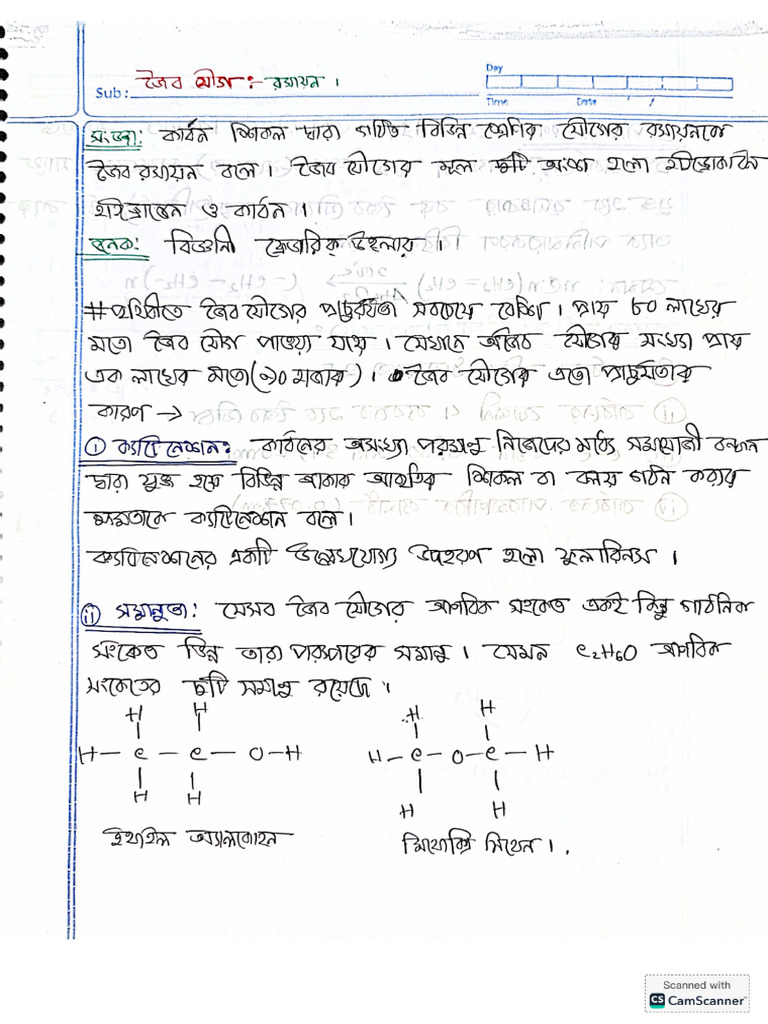 Day
Sub: জৈব যৌগ :- রসায়ন ।
Time Date / /
সংজ্ঞা: কার্বন শিকল দ্বারা গঠিত বিভিন্ন শ্রেণির যৌগের রসায়নকে
জৈব রসায়ন বলে । জৈব যৌগের মূল দুটি অংশ হলো হাইড্রোকার্বন
হাইড্রোজেন ও কার্বন ।
জনক: বিজ্ঞানী ফ্রেডারিক উহলার ।
# পৃথিবীতে জৈব যৌগের প্রাচুর্যতা সবচেয়ে বেশি । প্রায় ৮০ লাখের
মতো জৈব যৌগ পাওয়া যায় । যেখানে অজৈব যৌগের সংখ্যা প্রায়
এক লাখের মতো (৯০ হাজার) । জৈব যৌগের এতো প্রাচুর্যতার
কারণ →
i ক্যাটিনেশন: কার্বনের অসংখ্য পরমাণু নিজেদের মধ্যে সমযোজী বন্ধন
দ্বারা যুক্ত হয়ে বিভিন্ন আকার আকৃতির শিকল বা বলয় গঠন করার
ক্ষমতাকে ক্যাটিনেশন বলে ।
ক্যাটিনেশনের একটি উল্লেখযোগ্য উদাহরণ হলো ফুলারিনস ।
ii সমানুতা: যেসব জৈব যৌগের আণবিক সংকেত একই কিন্তু গাঠনিক
সংকেত ভিন্ন তারা পরস্পরের সমানু । যেমন C₂H₆O আণবিক
সংকেতের দুটি সমাণু রয়েছে ।
H H H H
H – C – C – O – H H – C – O – C – H
H H H H
ইথাইল অ্যালকোহল মিথোক্সি মিথেন ।
Scanned with
CS CamScanner